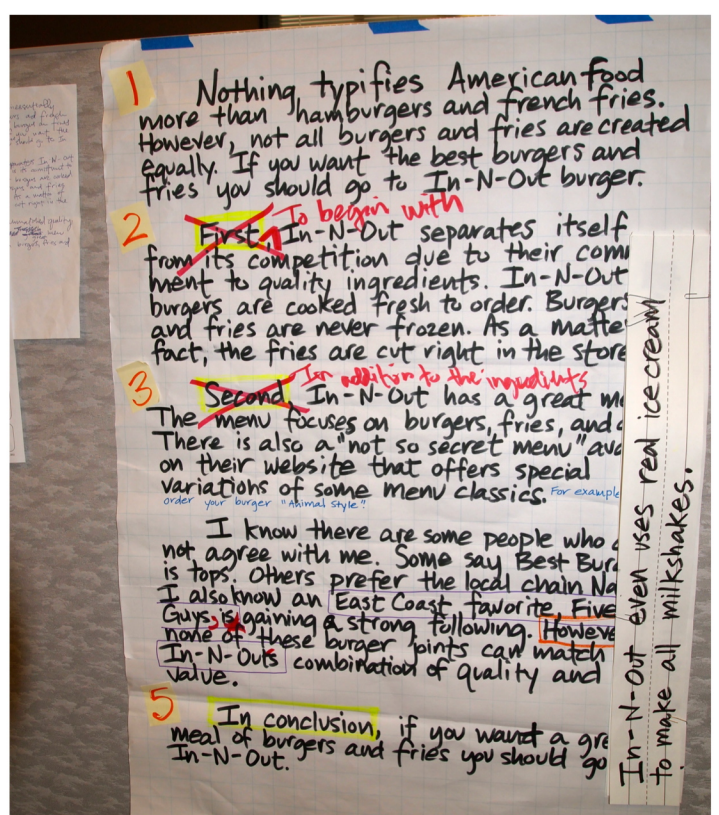 1
Nothing typifies American food
more than hamburgers and french fries.
However, not all burgers and fries are created
equally. If you want the best burgers and
fries you should go to In-N-Out burger.
2
First, To begin with, In-N-Out separates itself
from its competition due to their
ment to quality ingredients. In-N-Out
burgers are cooked fresh to order. Burgers
and fries are never frozen. As a
fact, the fries are cut right in the store
3
Second, In addition to the ingredients In-N-Out has a great
The menu focuses on burgers, fries, and
There is also a "not so secret menu"
on their website that offers special
variations of some menu classics. For example
order your burger "Animal Style"
I know there are some people who
not agree with me. Some say Best
is tops. Others prefer the local chain
I also know an East Coast favorite, Five
Guys, is gaining a strong following.
none of these burger joints can match
In-N-Outs combination of quality and
value.
5
In conclusion, if you want a
meal of burgers and fries you should go
In-N-Out.
In-N-Out even uses real ice cream
to make all milkshakes.